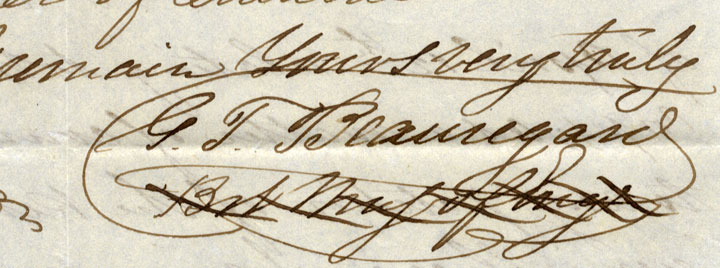 of
remain Yours very truly
G. T. Beauregard
Bvt Maj of Engs